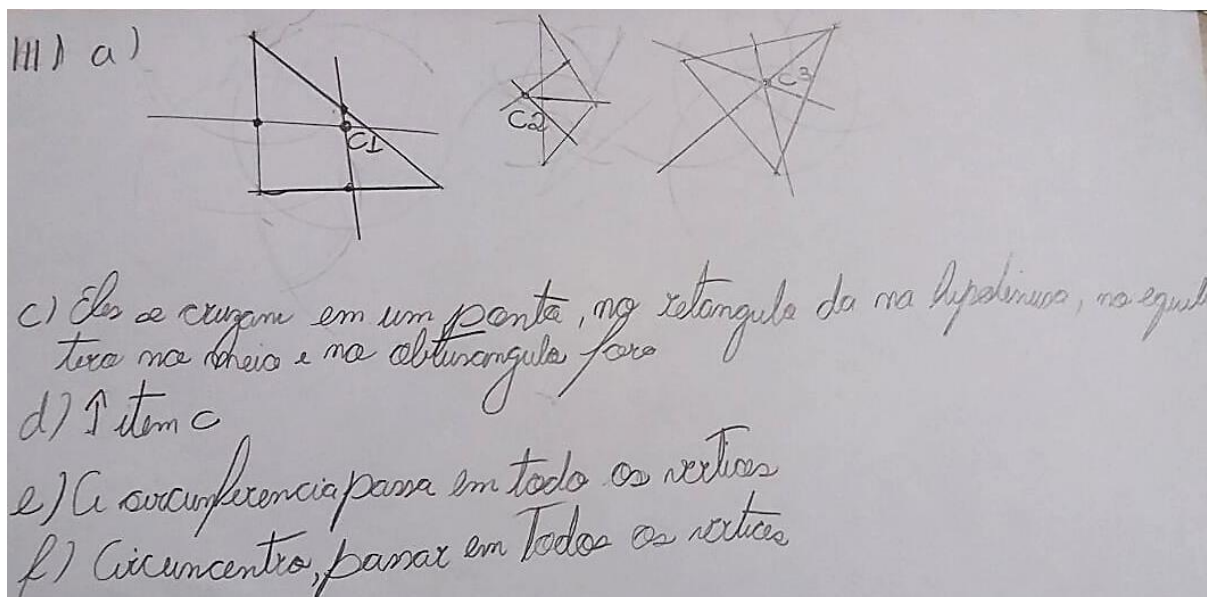 III) a)
C1
C2
C3
c) Eles se cruzam em um ponto, no retangulo da na hipotinusa, no equila
tero no meio e no obtusangulo fora
d) ↑ item c
e) A circunferencia passa em todo os vertices
f) Circuncentro, passar em Todos os vertices